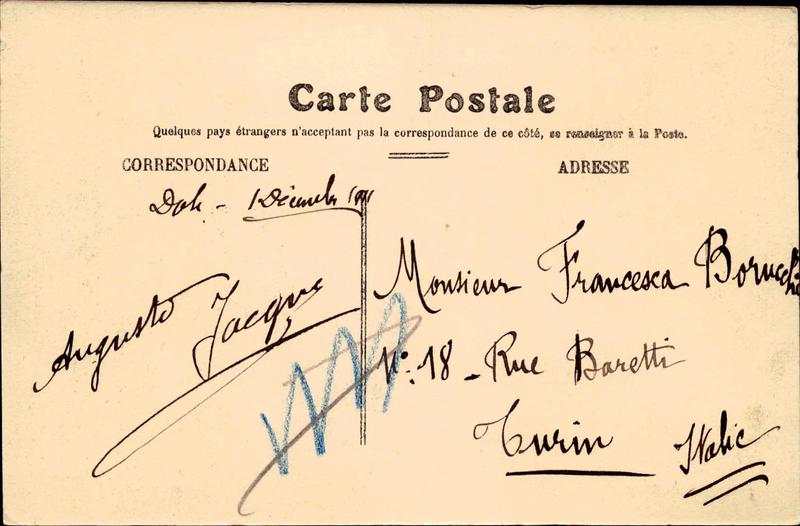 Carte Postale
Quelques pays étrangers n'acceptant pas la correspondance de ce côté, se renseigner à la Poste.
CORRESPONDANCE
ADRESSE
1 Décembre
Auguste Jacque
Monsieur Francesca
N° 18 - Rue Baretti
Turin Italie